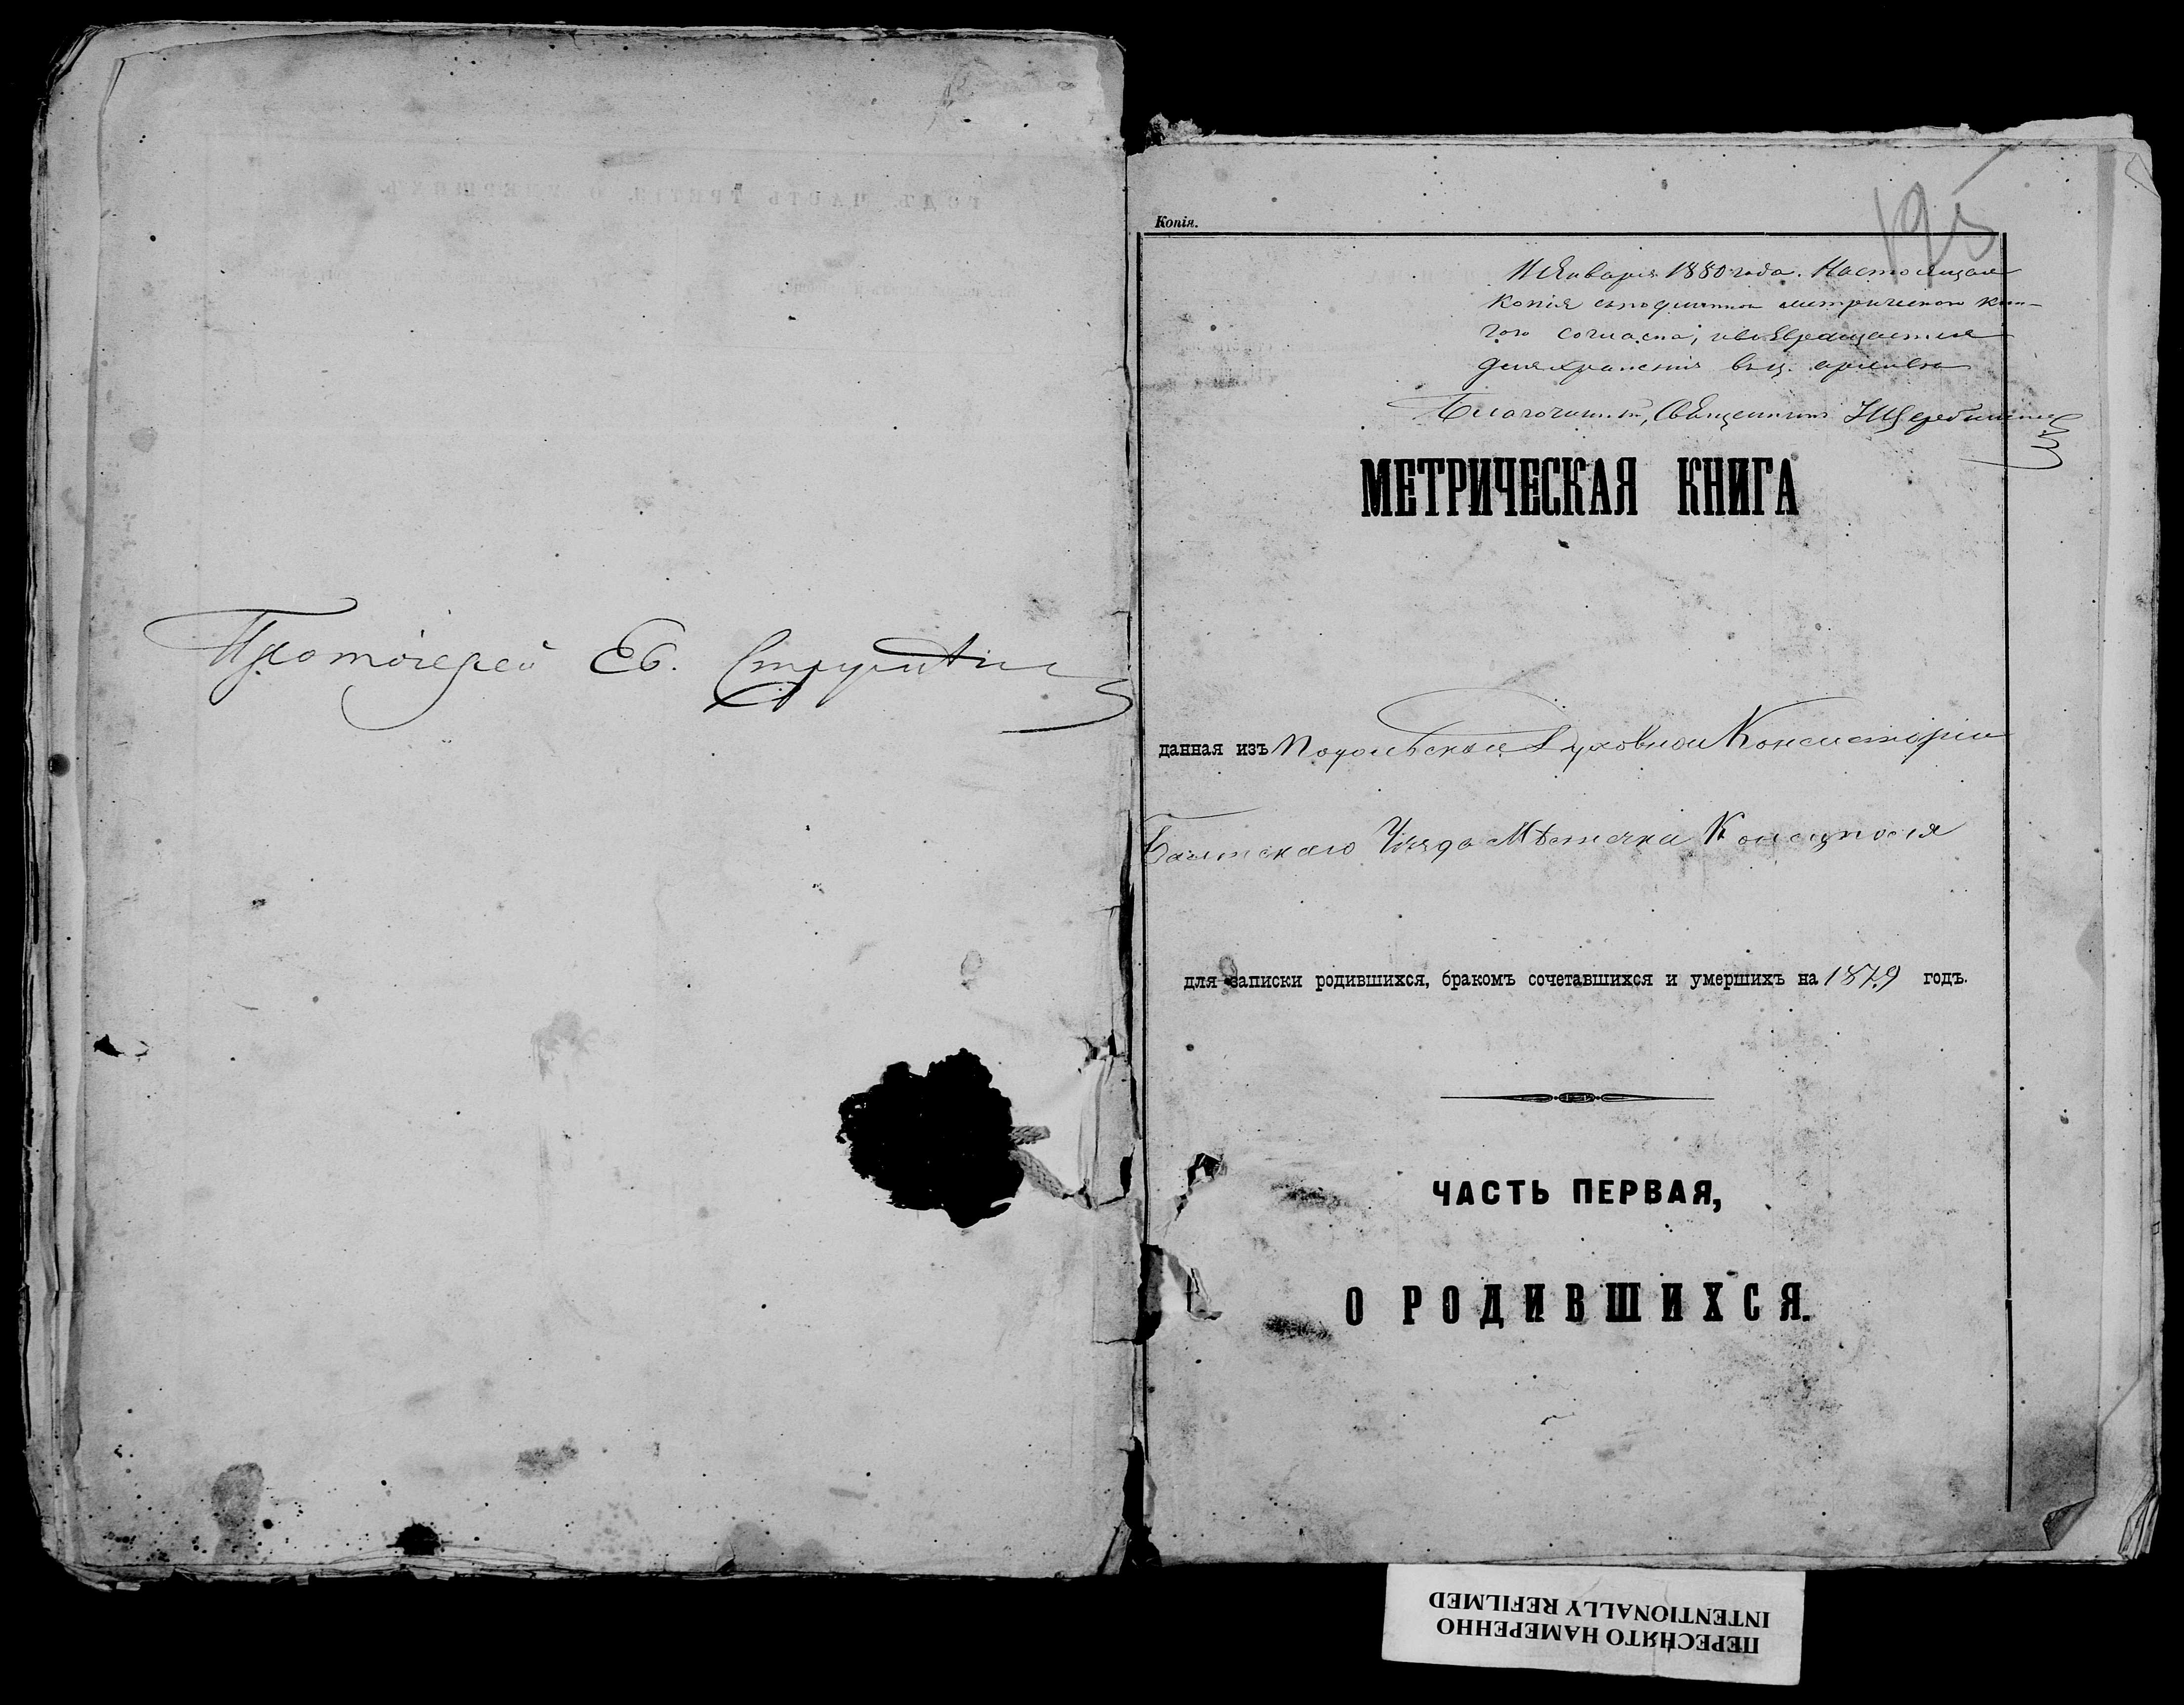 Протоіерей Ев.
195
Копія.
11 Января 1880 года. Настоящая
копія съ подлинною метрическою кни-
гою согласна, и возвращается
для храненія въ ц. архивъ
Благочинный, Священникъ
МЕТРИЧЕСКАЯ КНИГА
данная изъ Подольской Духовной Консисторіи
Балтскаго Уѣзда Мѣстечка Конецполя
для записки родившихся, бракомъ сочетавшихся и умершихъ на 1879 годъ.
ЧАСТЬ ПЕРВАЯ,
О РОДИВШИХСЯ.
ПЕРЕСНЯТО НАМЕРЕННО
INTENTIONALLY REFILMED